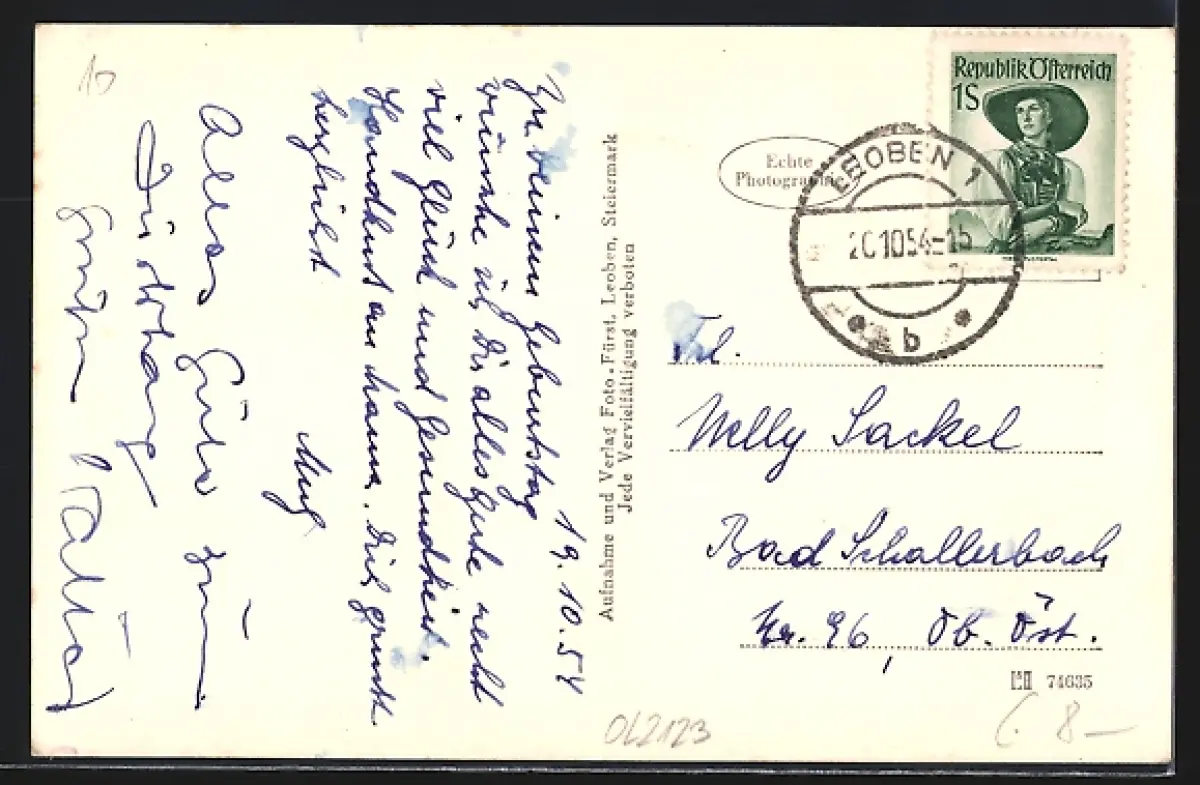 19.10.54
Zu Deinem Geburtstag
wünsche ich Dir alles Gute recht
viel Glück und Gesundheit.
Handkuss an Mama. Dich grüsst
herzlichst
Alles Gute zum
Aufnahme und Verlag Foto-Fürst, Leoben, Steiermark
Jede Vervielfältigung verboten
Echte
Photographie
Republik Österreich
1S
LEOBEN 1
20.10.54-15
b
Frl.
Nelly Sackel
Bad Schallerbach
Nr. 96, Ob. Öst.
74635
OL2123
8—
10